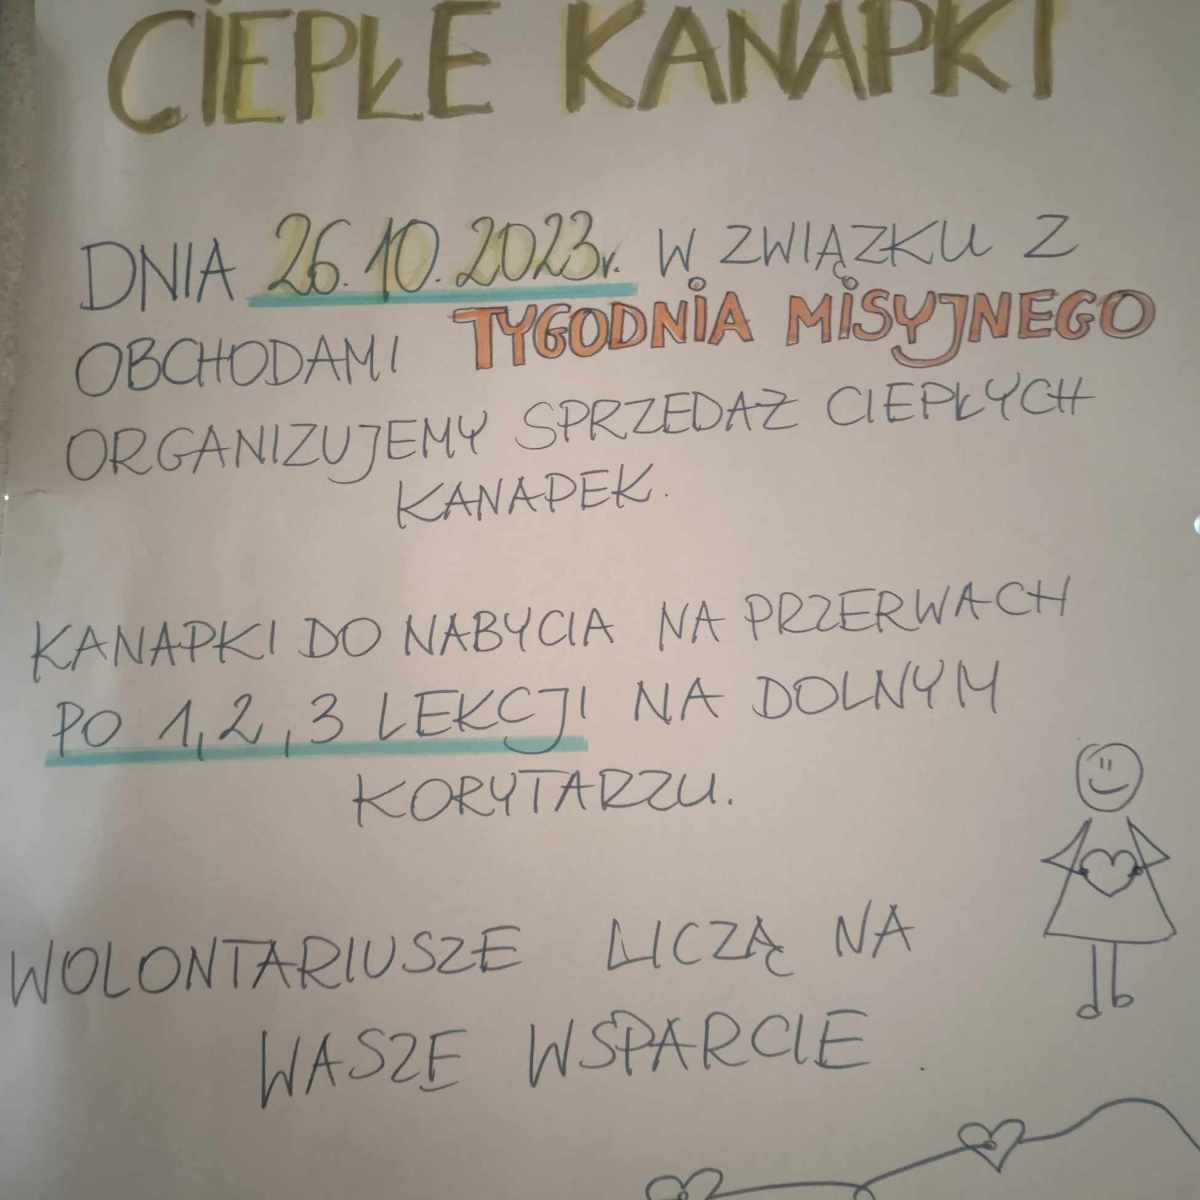 CIEPŁE KANAPKI
DNIA 26.10.2023r. W ZWIĄZKU Z
OBCHODAMI TYGODNIA MISYJNEGO
ORGANIZUJEMY SPRZEDAŻ CIEPŁYCH
KANAPEK.
KANAPKI DO NABYCIA NA PRZERWACH
PO 1, 2, 3 LEKCJI NA DOLNYM
KORYTARZU.
WOLONTARIUSZE LICZĄ NA
WASZE WSPARCIE.